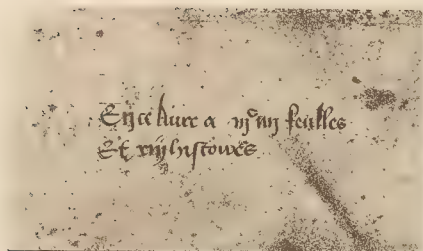 En ce liure a vjc iiij feulles
Et xiiij histoires